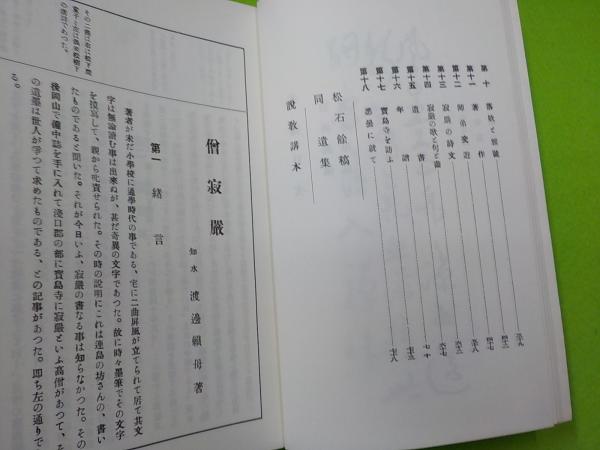 第十　落款と雅號　三九
第十一　著作　四三
第十二　師弟交遊　四七
第十三　寂嚴の詩文　四八
第十四　寂嚴の歌と句と畵　六三
第十五　遺書　六七
第十六　年譜　七十
第十七　寶島寺を訪ふ　七三
第十八　悉曇に就て　七八
松石餘稿
同遺集
説教講本
僧寂嚴
知水　渡邊頼母著
第一　緒言
著者が未だ小學校に通學時代の事である、宅に二曲屏風が立てられて居て其文
字は無論讀む事は出來ぬが、甚だ奇異の文字であつた。故に時々墨筆でその文字
を摸寫して、親から叱責せられた。その時の説明にこれは連島の坊さんの、書い
たものであると聞いた。それが今日いふ、寂嚴の書なる事は知らなかつた。その
後岡山で備中誌を手に入れて淺口郡の部に寶島寺に寂嚴といふ高僧があつて、そ
の遺墨は世人が爭つて求めたものである、との記事があつた。即ち左の通りで
る。
その二曲は右は松下問
童子と左は飲來松樹下
の詩であつた。